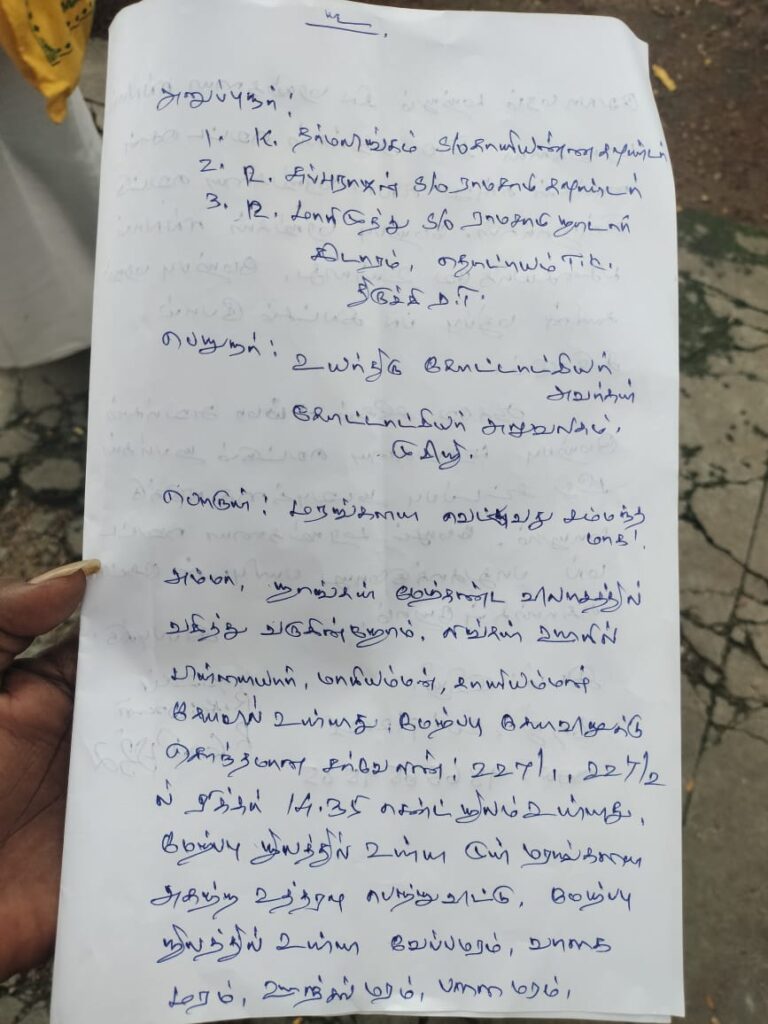 அனுப்புநர்:
1. K. தர்மலிங்கம் S/o காளியண்ண கவுண்டர்
2. R. சுப்புராயன் S/o ராமசாமி கவுண்டர்
3. R. மாரிமுத்து S/o ராமசாமி நாடார்
கிடாரம், தொட்டியம் T.K.
திருச்சி D.T.
பெறுநர்:
உயர்திரு கோட்டாட்சியர்
அவர்கள்
கோட்டாட்சியர் அலுவலகம்,
முசிறி.
பொருள்: மரங்களை வெட்டுவது சம்மந்த
மாக!
அம்மா, நாங்கள் மேற்கண்ட விலாசத்தில்
வசித்து வருகின்றோம். எங்கள் ஊரில்
பிள்ளையார், மாரியம்மன், காளியம்மன்
கோவில் உள்ளது. மேற்படி கோவிலுக்கு
சொந்தமான சர்வே எண்: 227/1, 227/2
ல் 14.35 சென்ட் நிலம் உள்ளது.
மேற்படி நிலத்தில் உள்ள முள் மரங்களை
அகற்ற உத்தரவு பெற்றுவிட்டு, மேற்படி
நிலத்தில் உள்ள வேப்பமரம், வாகை
மரம், மரம், பனை மரம்,